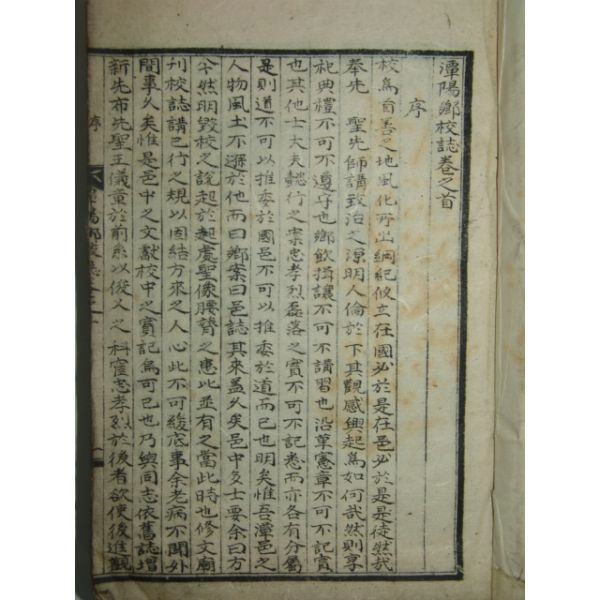 潭陽鄉校誌卷之首
序
校爲首善之地風化所出綱紀攸立在國必於是在邑必於是是徒然哉
奉先聖先師講致治之源明人倫於下其觀感興起爲如何哉然則享
祀典禮不可不遵守也鄉飮揖讓不可不講習也沿革憲章不可不記實
也其他士大夫懿行之案忠孝烈磊落之實不可不記悉而亦各有分屬
是則道不可以推委於國邑不可以推委於道而已也明矣惟吾潭邑之
人物風土不遜於他而曰鄉案曰邑誌其來盖久矣邑中多士要余曰方
今然明毁校之說起於起處聖像腰膂之患此並有之當此時也修文廟
刊校誌講已行之規以固結方來之人心此不可緩底事余老病不聞外
間事久矣惟是邑中之文獻校中之實記烏可已也乃與同志依舊誌增
新先布先聖王儀章於前系以俊乂之科寔忠孝烈於後者欲使後進觀
序
潭陽鄉校誌卷之